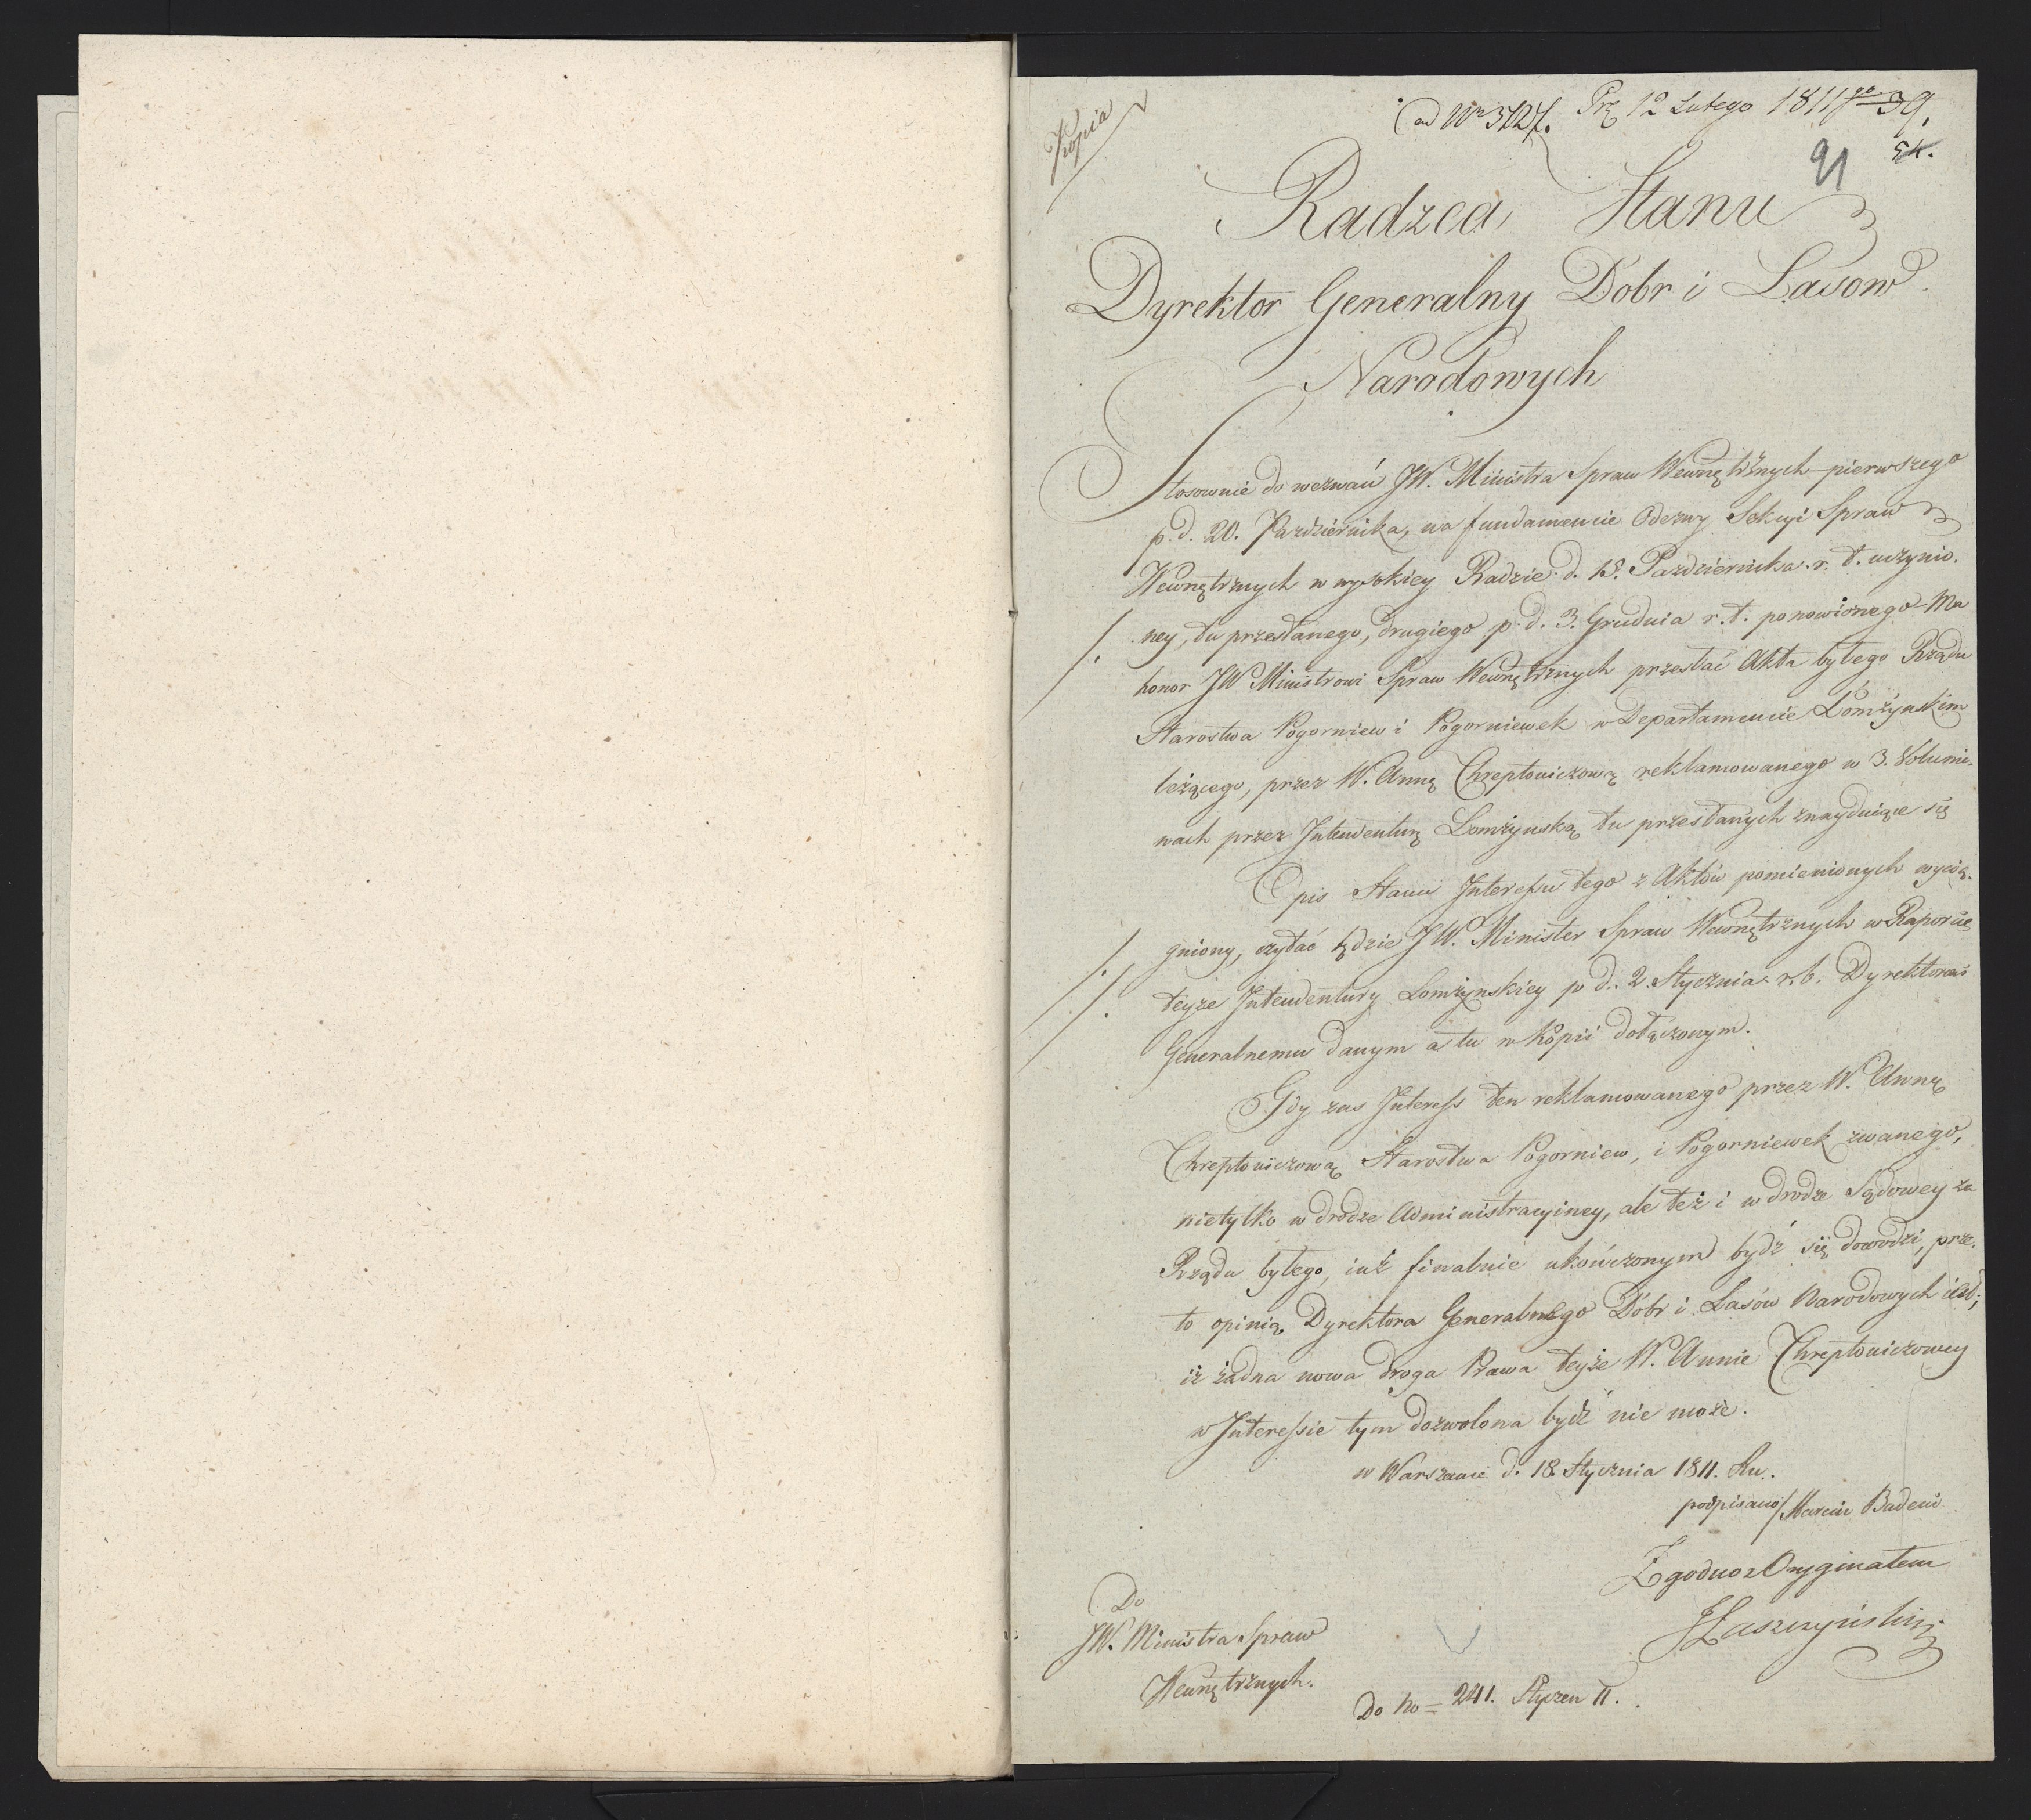 Kopia
ad Nr 3727. Prz 12 Lutego 1811 39.
91 54.
Radzca Stanu
Dyrektor Generalny Dobr i Lasow
Narodowych
Stosownie do wezwań JW. Ministra Spraw Wewnętrznych pierwszego
p. d. 20. Pazdziernika, na fundamencie Odezwy Sekcyi Spraw
Wewnętrznych w wysokiey Radzie d. 15. Pazdziernika r. t. uczynio-
ney, tu przesłanego, drugiego p. d. 3. Grudnia r. t. ponowionego Ma
honor JW Ministrowi Spraw Wewnętrznych przesłać Akta byłego Rządu
Starostwa Pogorniew i Pogorniewek w Departamencie Łomżynskim
leżącego, przez W. Annę Chreptowiczową reklamowanego w 3. Volumi-
nach przez Intendenturę Łomżynską tu przesłanych znayduiące się
Opis Stanu Interessu tego z Aktów pomienionych wycią-
gniony, czytać będzie JW. Minister Spraw Wewnętrznych w Raporcie
teyże Intendentury Łomżynskiey p d. 2. Stycznia r. b. Dyrektorowi
Generalnemu danym a tu w Kopii dołączonym.
Gdy zas Interess ten reklamowanego przez W. Annę
Chreptowiczową Starostwa Pogorniew, i Pogorniewek zwanego,
nietylko w drodze Administracyiney, ale też i w drodze Sądowey za
Rządu byłego, iuż finalnie ukończonym bydź się dowodzi, prze-
to opinią Dyrektora Generalnego Dóbr i Lasów Narodowych iest,
iż żadna nowa droga Prawa teyże W. Annie Chreptowiczowey
w Interessie tym dozwolona bydź nie może.
w Warszawie d. 18 Stycznia 1811. Ru.
podpisano/ Marcin Badeni
Zgodno z Oryginałem
JŁaszczyński
Do
JW. Ministra Spraw
Wewnętrznych.
Do No 241. Styczen 11.